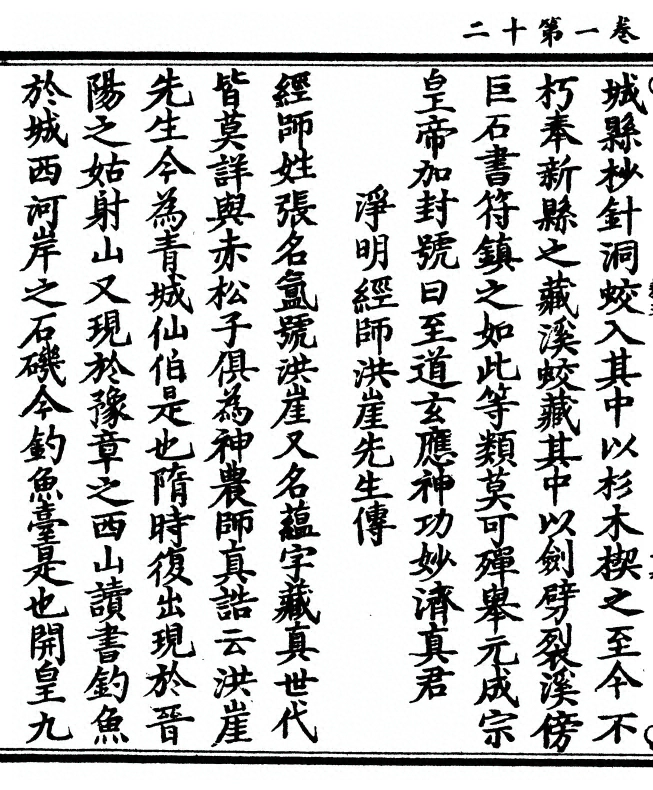 卷一第十二
城縣杪針洞蛟入其中以杉木楔之至今不
朽奉新縣之藏溪蛟藏其中以劍劈裂溪傍
巨石書符鎮之如此等類莫可殫舉元成宗
皇帝加封號曰至道玄應神功妙濟真君
淨明經師洪崖先生傳
經師姓張名氳號洪崖又名蘊字藏真世代
皆莫詳與赤松子俱為神農師真誥云洪崖
先生今為青城仙伯是也隋時復出現於晉
陽之姑射山又現於豫章之西山讀書釣魚
於城西河岸之石磯今釣魚臺是也開皇九